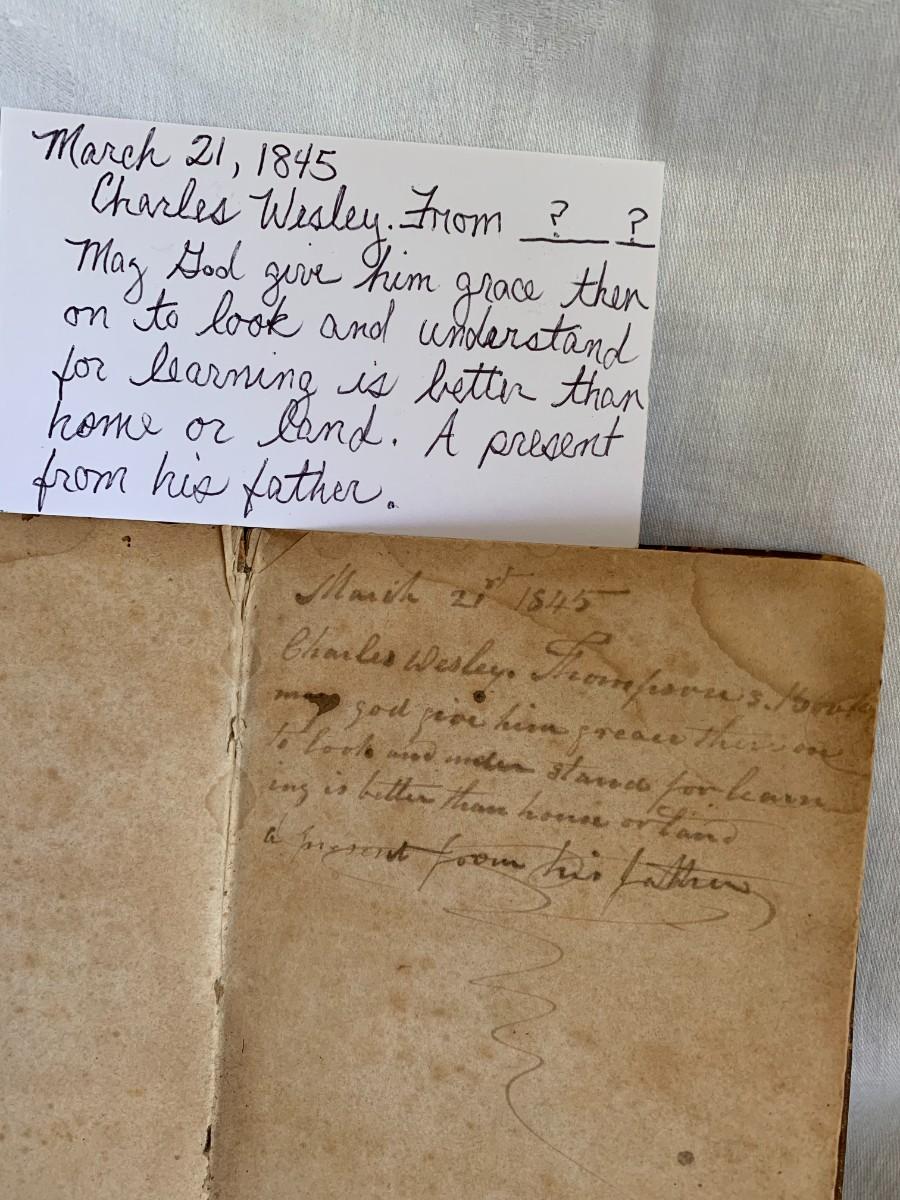 March 21, 1845
Charles Wesley. From ? ?
May God give him grace then
on to look and understand
for learning is better than
home or land. A present
from his father.
March 21st 1845
Charles Wesley. Thompson's. Book
may god give him greace then on
to look and under stand for learn
ing is better than house or land
a present from his father